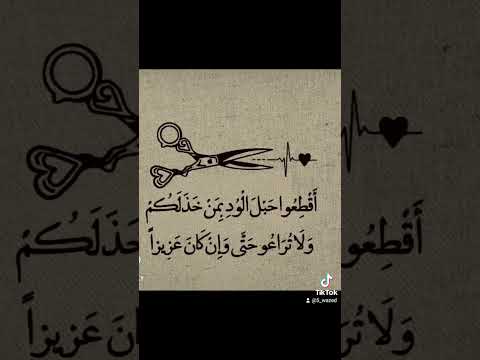 أَقْطِعُوا حَبْلَ الْوِدِ بِمَنْ خَذَلَكُمْ
وَلَا تُرَاعُو حَتَّى وَإِنْ كَانَ عَزِيزاً
TikTok
@S_wazed